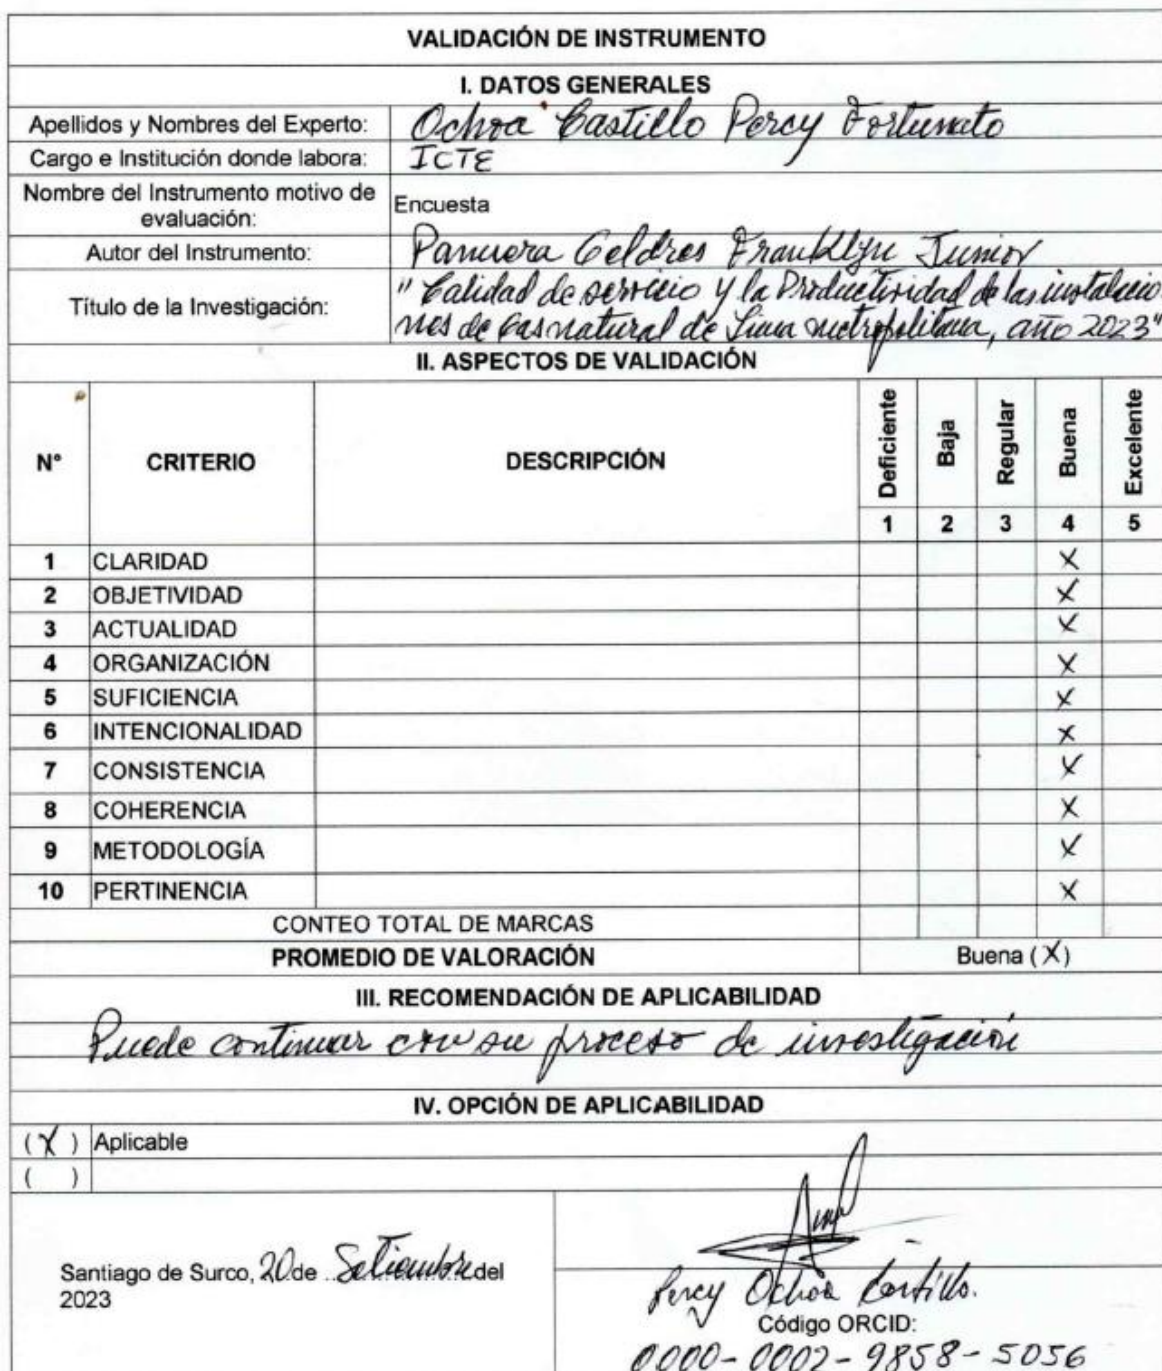 VALIDACIÓN DE INSTRUMENTO
I. DATOS GENERALES
Apellidos y Nombres del Experto: Ochoa Castillo Percy Fortunato
Cargo e Institución donde labora: ICTE
Nombre del Instrumento motivo de
evaluación: Encuesta
Autor del Instrumento: Panuera Geldres Franklyn Junior
Título de la Investigación: "Calidad de servicio y la Productividad de las instalacio
nes de Gas natural de Lima metropolitana, año 2023"
II. ASPECTOS DE VALIDACIÓN
N° CRITERIO DESCRIPCIÓN Deficiente Baja Regular Buena Excelente
1 2 3 4 5
1 CLARIDAD X
2 OBJETIVIDAD X
3 ACTUALIDAD X
4 ORGANIZACIÓN X
5 SUFICIENCIA X
6 INTENCIONALIDAD X
7 CONSISTENCIA X
8 COHERENCIA X
9 METODOLOGÍA X
10 PERTINENCIA X
CONTEO TOTAL DE MARCAS
PROMEDIO DE VALORACIÓN Buena (X)
III. RECOMENDACIÓN DE APLICABILIDAD
Puede continuar con su proceso de investigación
IV. OPCIÓN DE APLICABILIDAD
(X) Aplicable
( )
Santiago de Surco, 20 de Setiembre del
2023
Percy Ochoa Castillo.
Código ORCID:
0000-0002-9858-5056